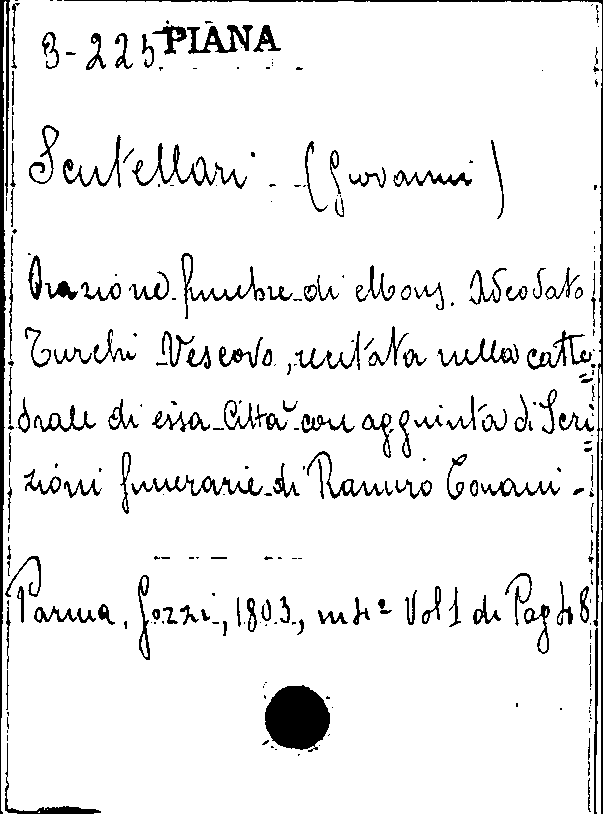 3-225 PIANA
Scutellari (Giovanni)
Orazione funebre di Mons. Adeodato
Turchi Vescovo, recitata nella catte
drale di essa Città con aggiunta di Scri
zioni funerarie di Ramiro Tonani -
Parma, Gozzi, 1803, in 4º Vol 1 di Pag 48